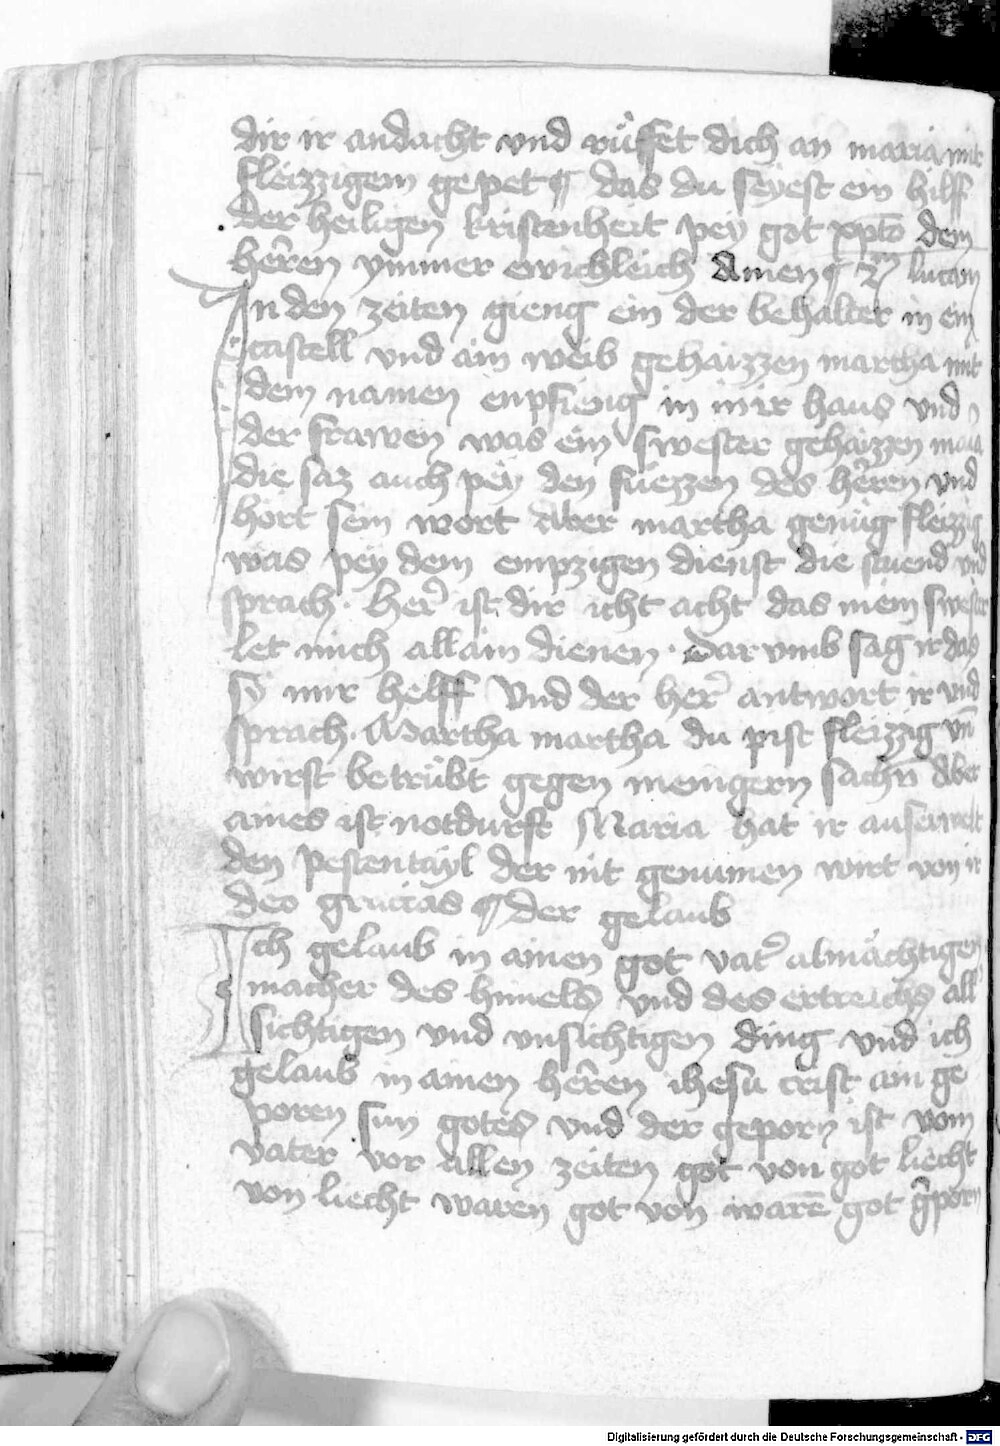 dir ir andacht vnd rüffet dich an maria mit
fleizzigem gepet ¶ das du seyest ein hilff
der heiligen kristenheit pey got xpto dem
herren ymmer ewichleich Amen ¶ lucam
In den zeiten gieng ein der behalter in ein
castell vnd ain weib gehaizzen martha mit
dem namen enpfieng in in ir haus vnd
der frawen was ein swester gehaizzen maria
die saz auch pey den fuezzen des herren vnd
hort sein wort Aber martha genüg fleizzig
was pey dem empzigen dienst die stuend vnd
sprach · Her ist dir icht acht das mein swester
let mich allain dienen · Dar vmb sag ir das
sy mir helff Vnd der her antwort ir vnd
sprach · Martha martha du pist fleizzig vn̄
wirst betrübt gegen menigern sachn̄ Aber
aines ist notdurft Maria hat ir auserwelt
den pesten tayl der nit genumen wirt von ir
deo gracias ¶ der gelaub
Ich gelaub in ainen got vater almächtigen
macher des himels vnd des ertreichs all
sichtigen vnd vnsichtigen ding vnd ich
gelaub in ainen herren ihesu crist ain ge
poren sun gotes vnd der geporn ist vom
vater vor allen zeiten got von got liecht
von liecht waren got von warē got geporn
Digitalisierung gefördert durch die Deutsche Forschungsgemeinschaft - DFG